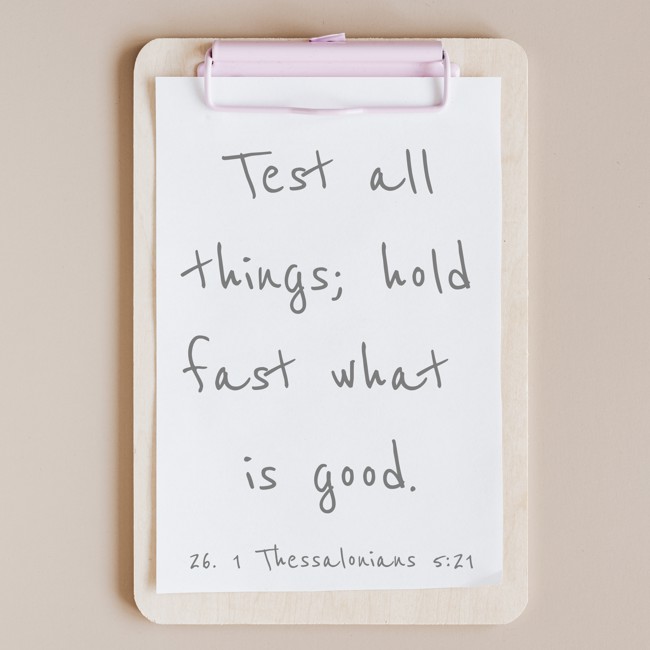 Test all
things; hold
fast what
is good.
26. 1 Thessalonians 5:21